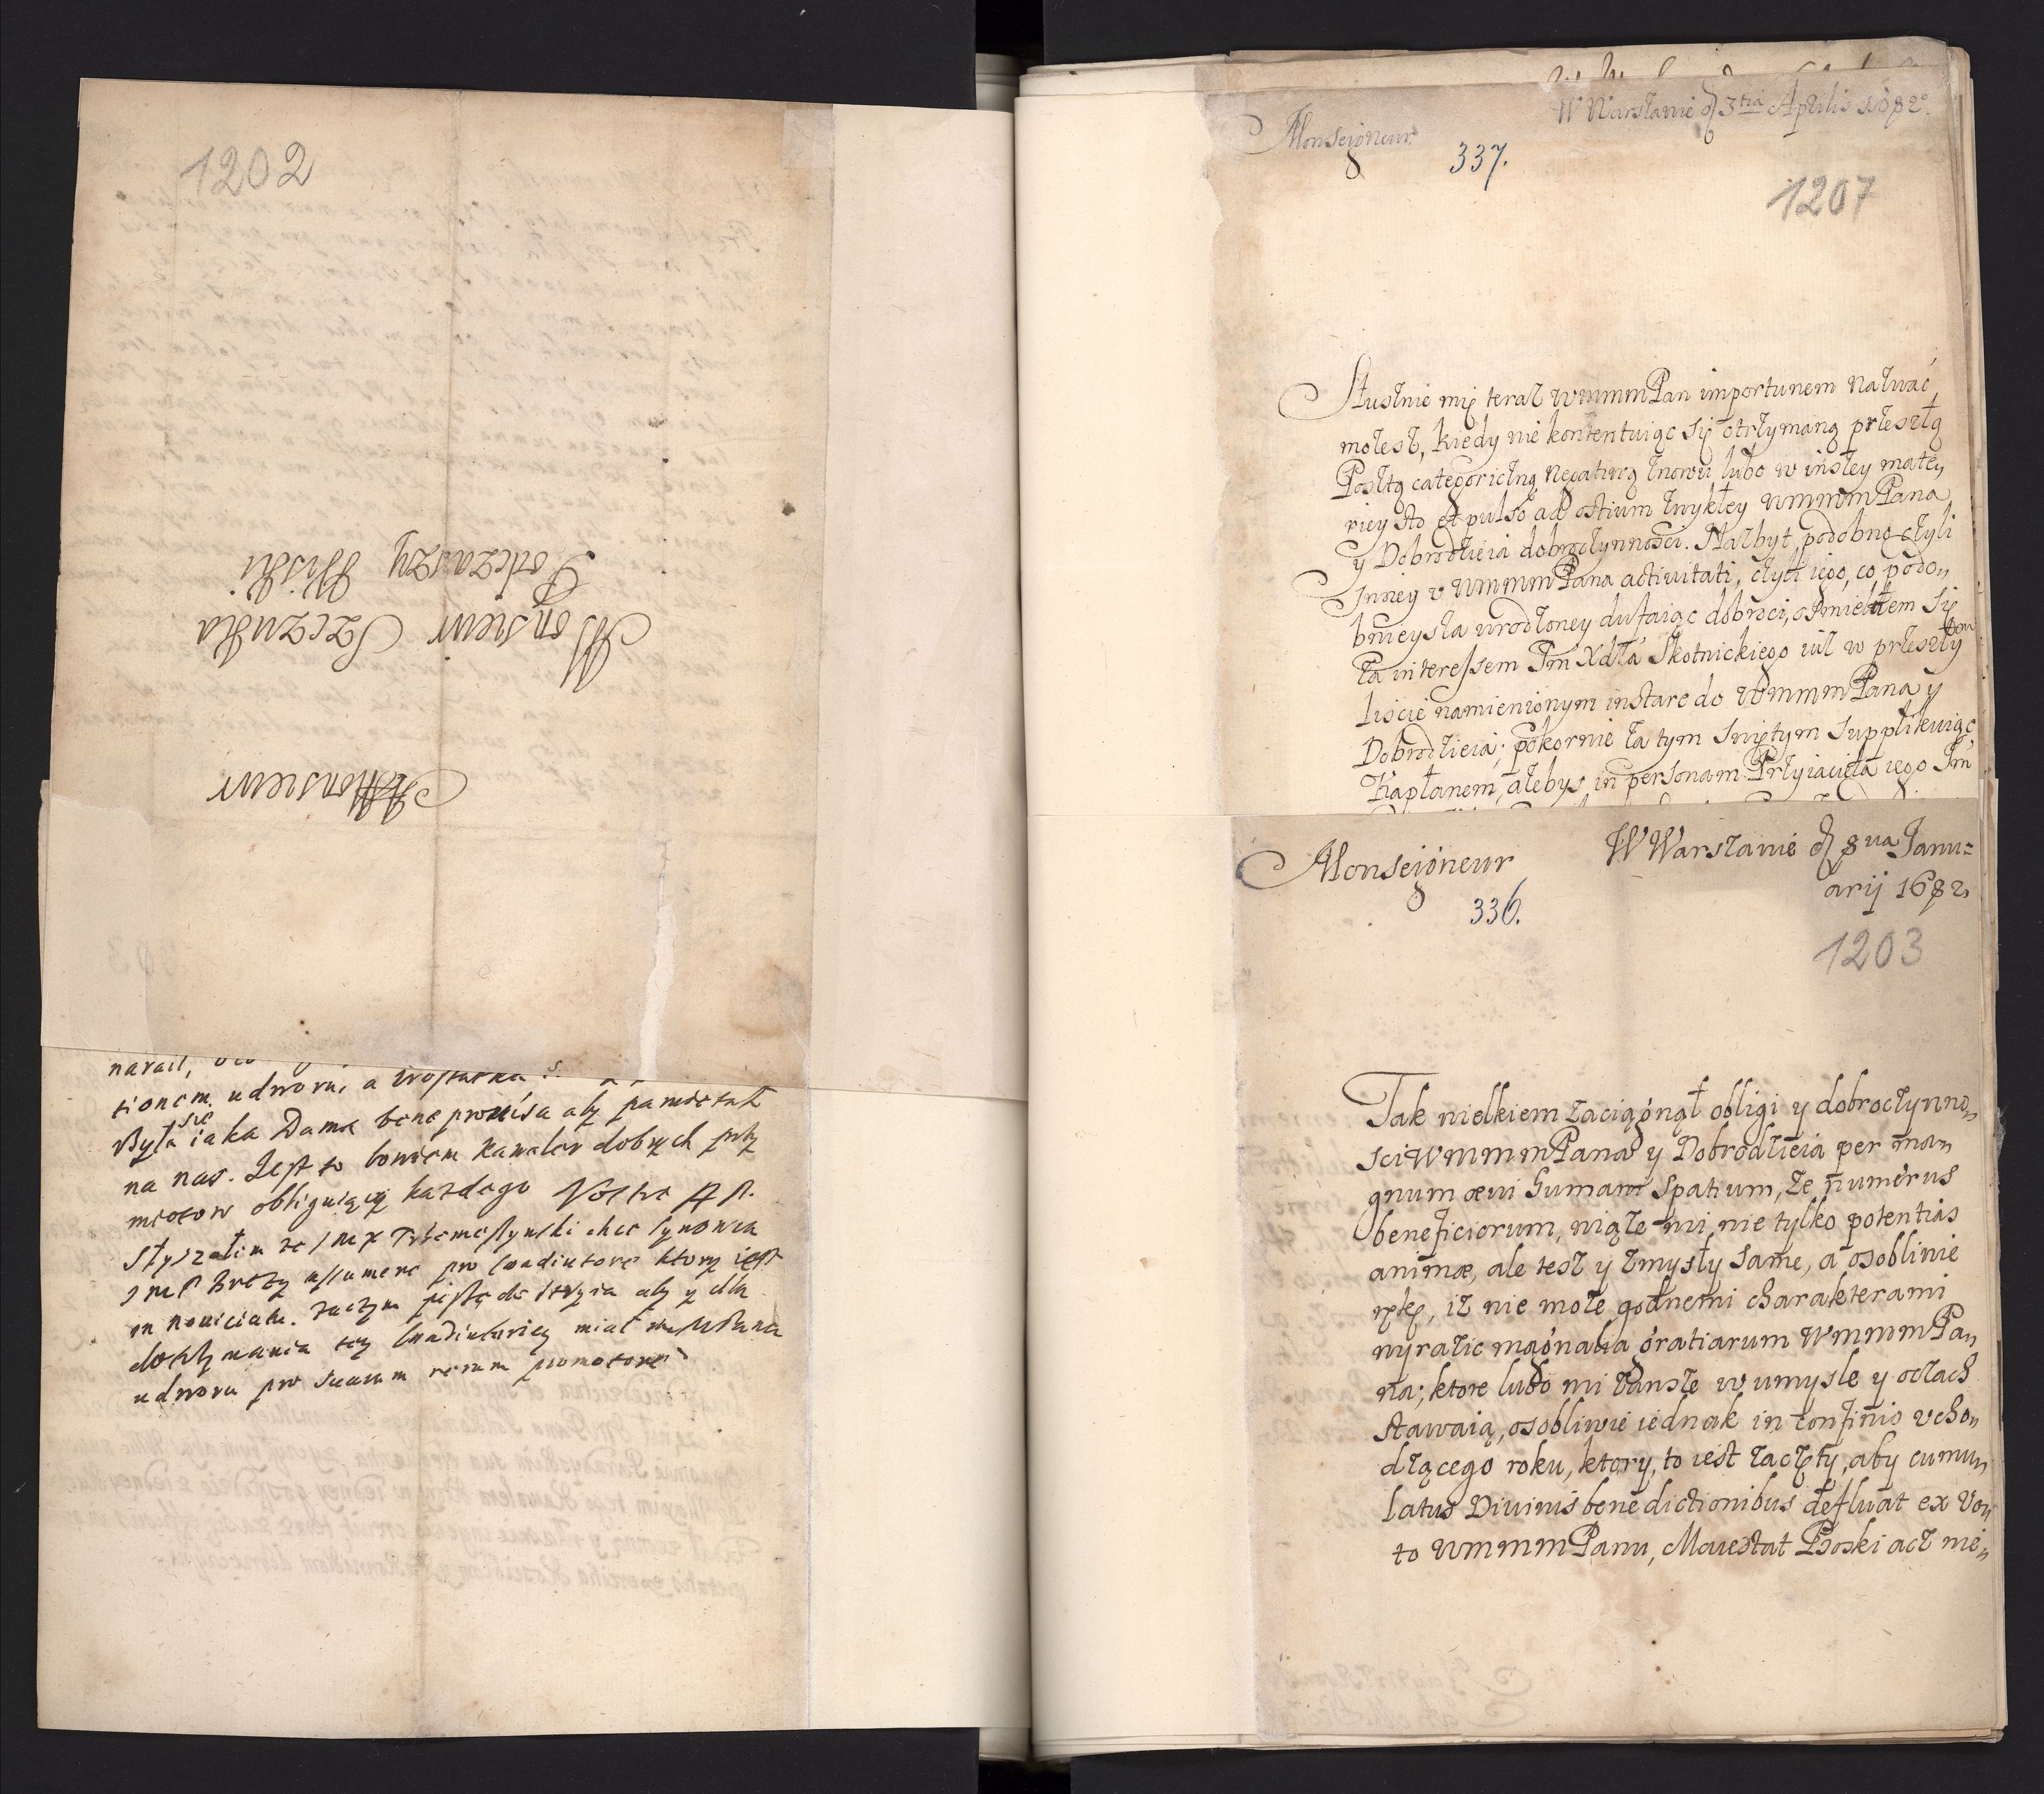 1202
Monsieur
Monsieur Szczuka
Podczaszy Wiski
tionem udworu, a
Była się iaka Dama bene promisa aby pamietała
na nas. Jest to bowiem kawaler dobrych przy
miotow obliguiący kazdego Vostre
Słyszałem ze Imx chce synowca
ImP assumere pro coadiutore ktory iest
in noviciatu. zaczym piszę do aby y dla
otrzymania tey coadiutoriey miał
udworu pro suarum rerum promotore
W Warszawie d 3tia Aprilis 1682.
Monseigneur
337.
1207
Słusznie mię teraz WMMMPan importunem nazwać
możesz, kiedy nie kontentuiąc się otrzymaną przeszłą
Posztą categoriczną negatiwą znowu lubo w inszey mate,,
riey sto et pulso ad ostium zwykłey WMMMPana
y Dobrodzieia dobroczynnosci. Nazbyt podobno czyli
inszey v WMMMPana activitati, czyli iego, co podo,,
bnieysza wrodzoney dufaiąc dobroci, osmieliłem się
za interessem Im Xdza Skotnickiego iuż w przeszłym
liscie namienionym instare do WMMMPana y
Dobrodzieia; pokornie za tym swiętym supplikuiąc
Kapłanem, ażebys in personam Przyiaciela iego Im
Monseigneur
W Warszawie d 8va Janu=
arij 1682,
336.
1203
Tak wielkiem zaciągnął obligi y dobroczynno,,
sci WMMMPana y Dobrodzieia per ma,,
gnum ævi humani spatium, że numerus
beneficiorum, wiąże mi nie tylko potentias
animæ, ale tesz y zmysły same, a osobliwie
rękę, iż nie może godnemi charakterami
wyrazic magnalia gratiarum WMMMPa,,
na; ktore lubo mi zawsze w umysle y oczach
stawaią, osobliwie iednak in confinio vcho,,
dzącego roku, ktory, to iest zaczęty, aby cumu,,
latus Divinis benedictionibus defluat ex vo,,
to WMMMPanu, Maiestat Boski acz nie,,